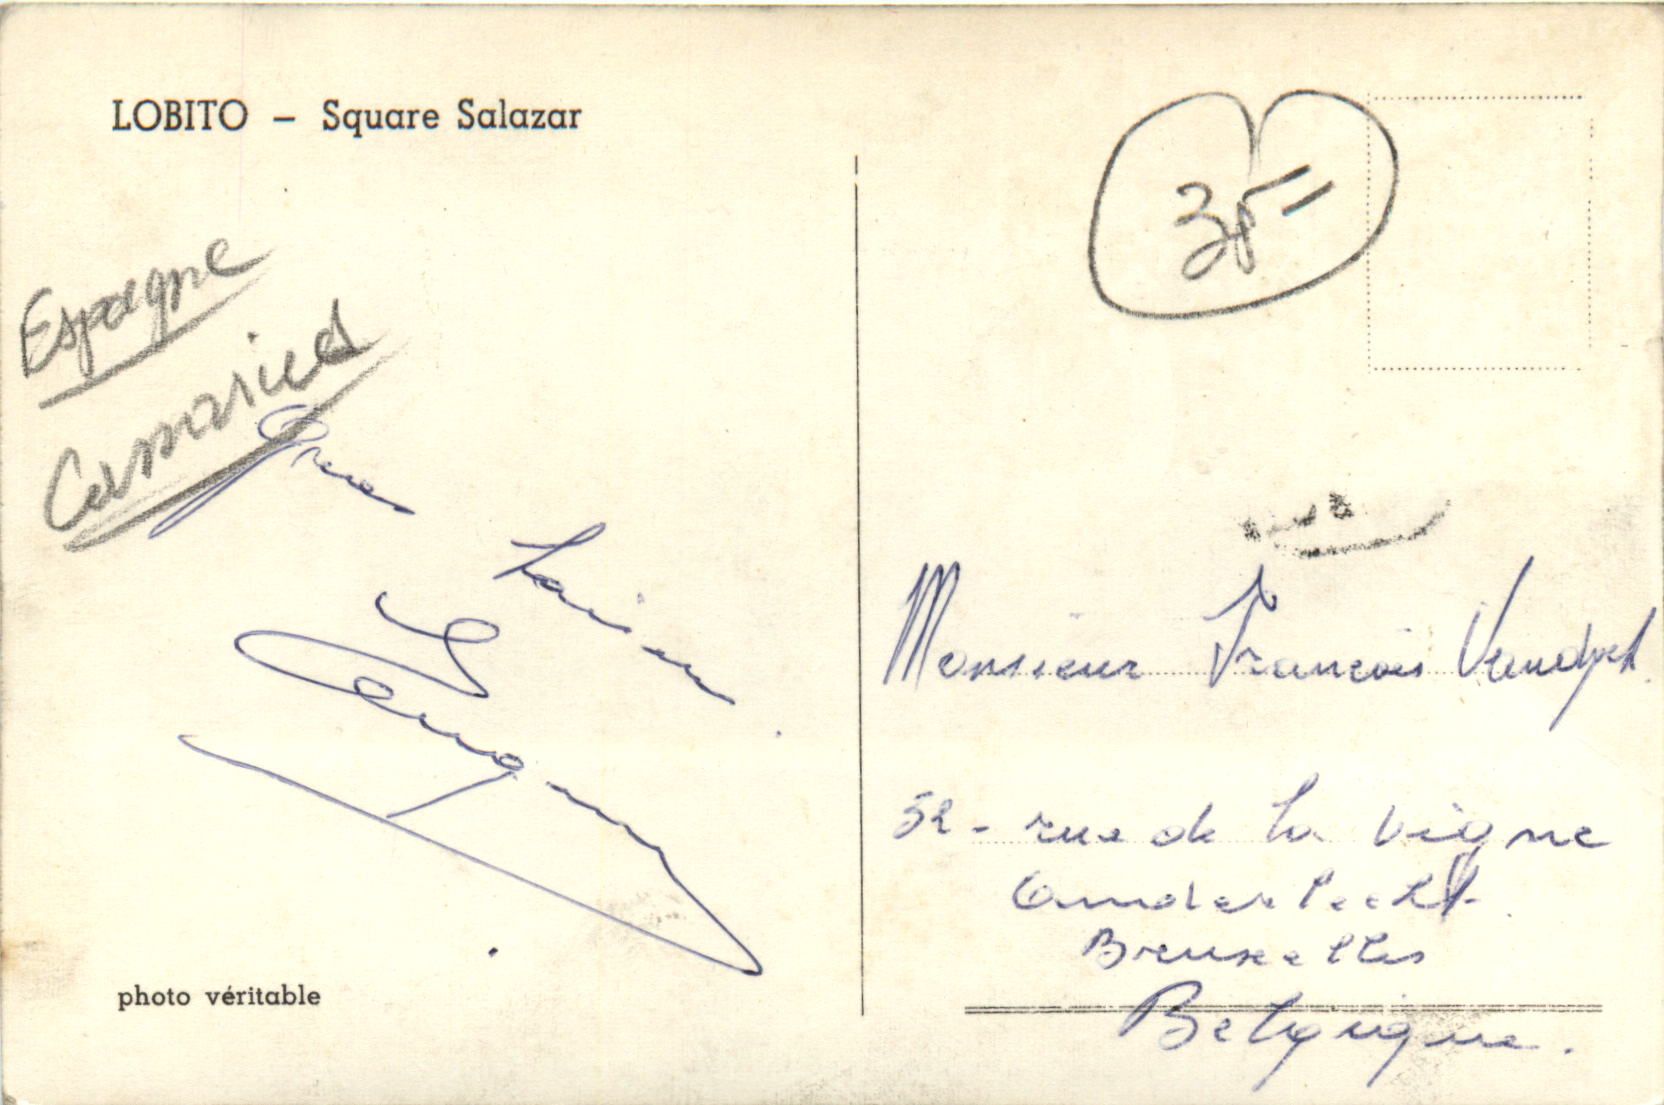 LOBITO – Square Salazar
35=
Espagne
Canaries
Gros
baisers
Monsieur François Vandyck
52 - rue de la Vigne
Anderlecht
Bruxelles
Belgique.
photo véritable